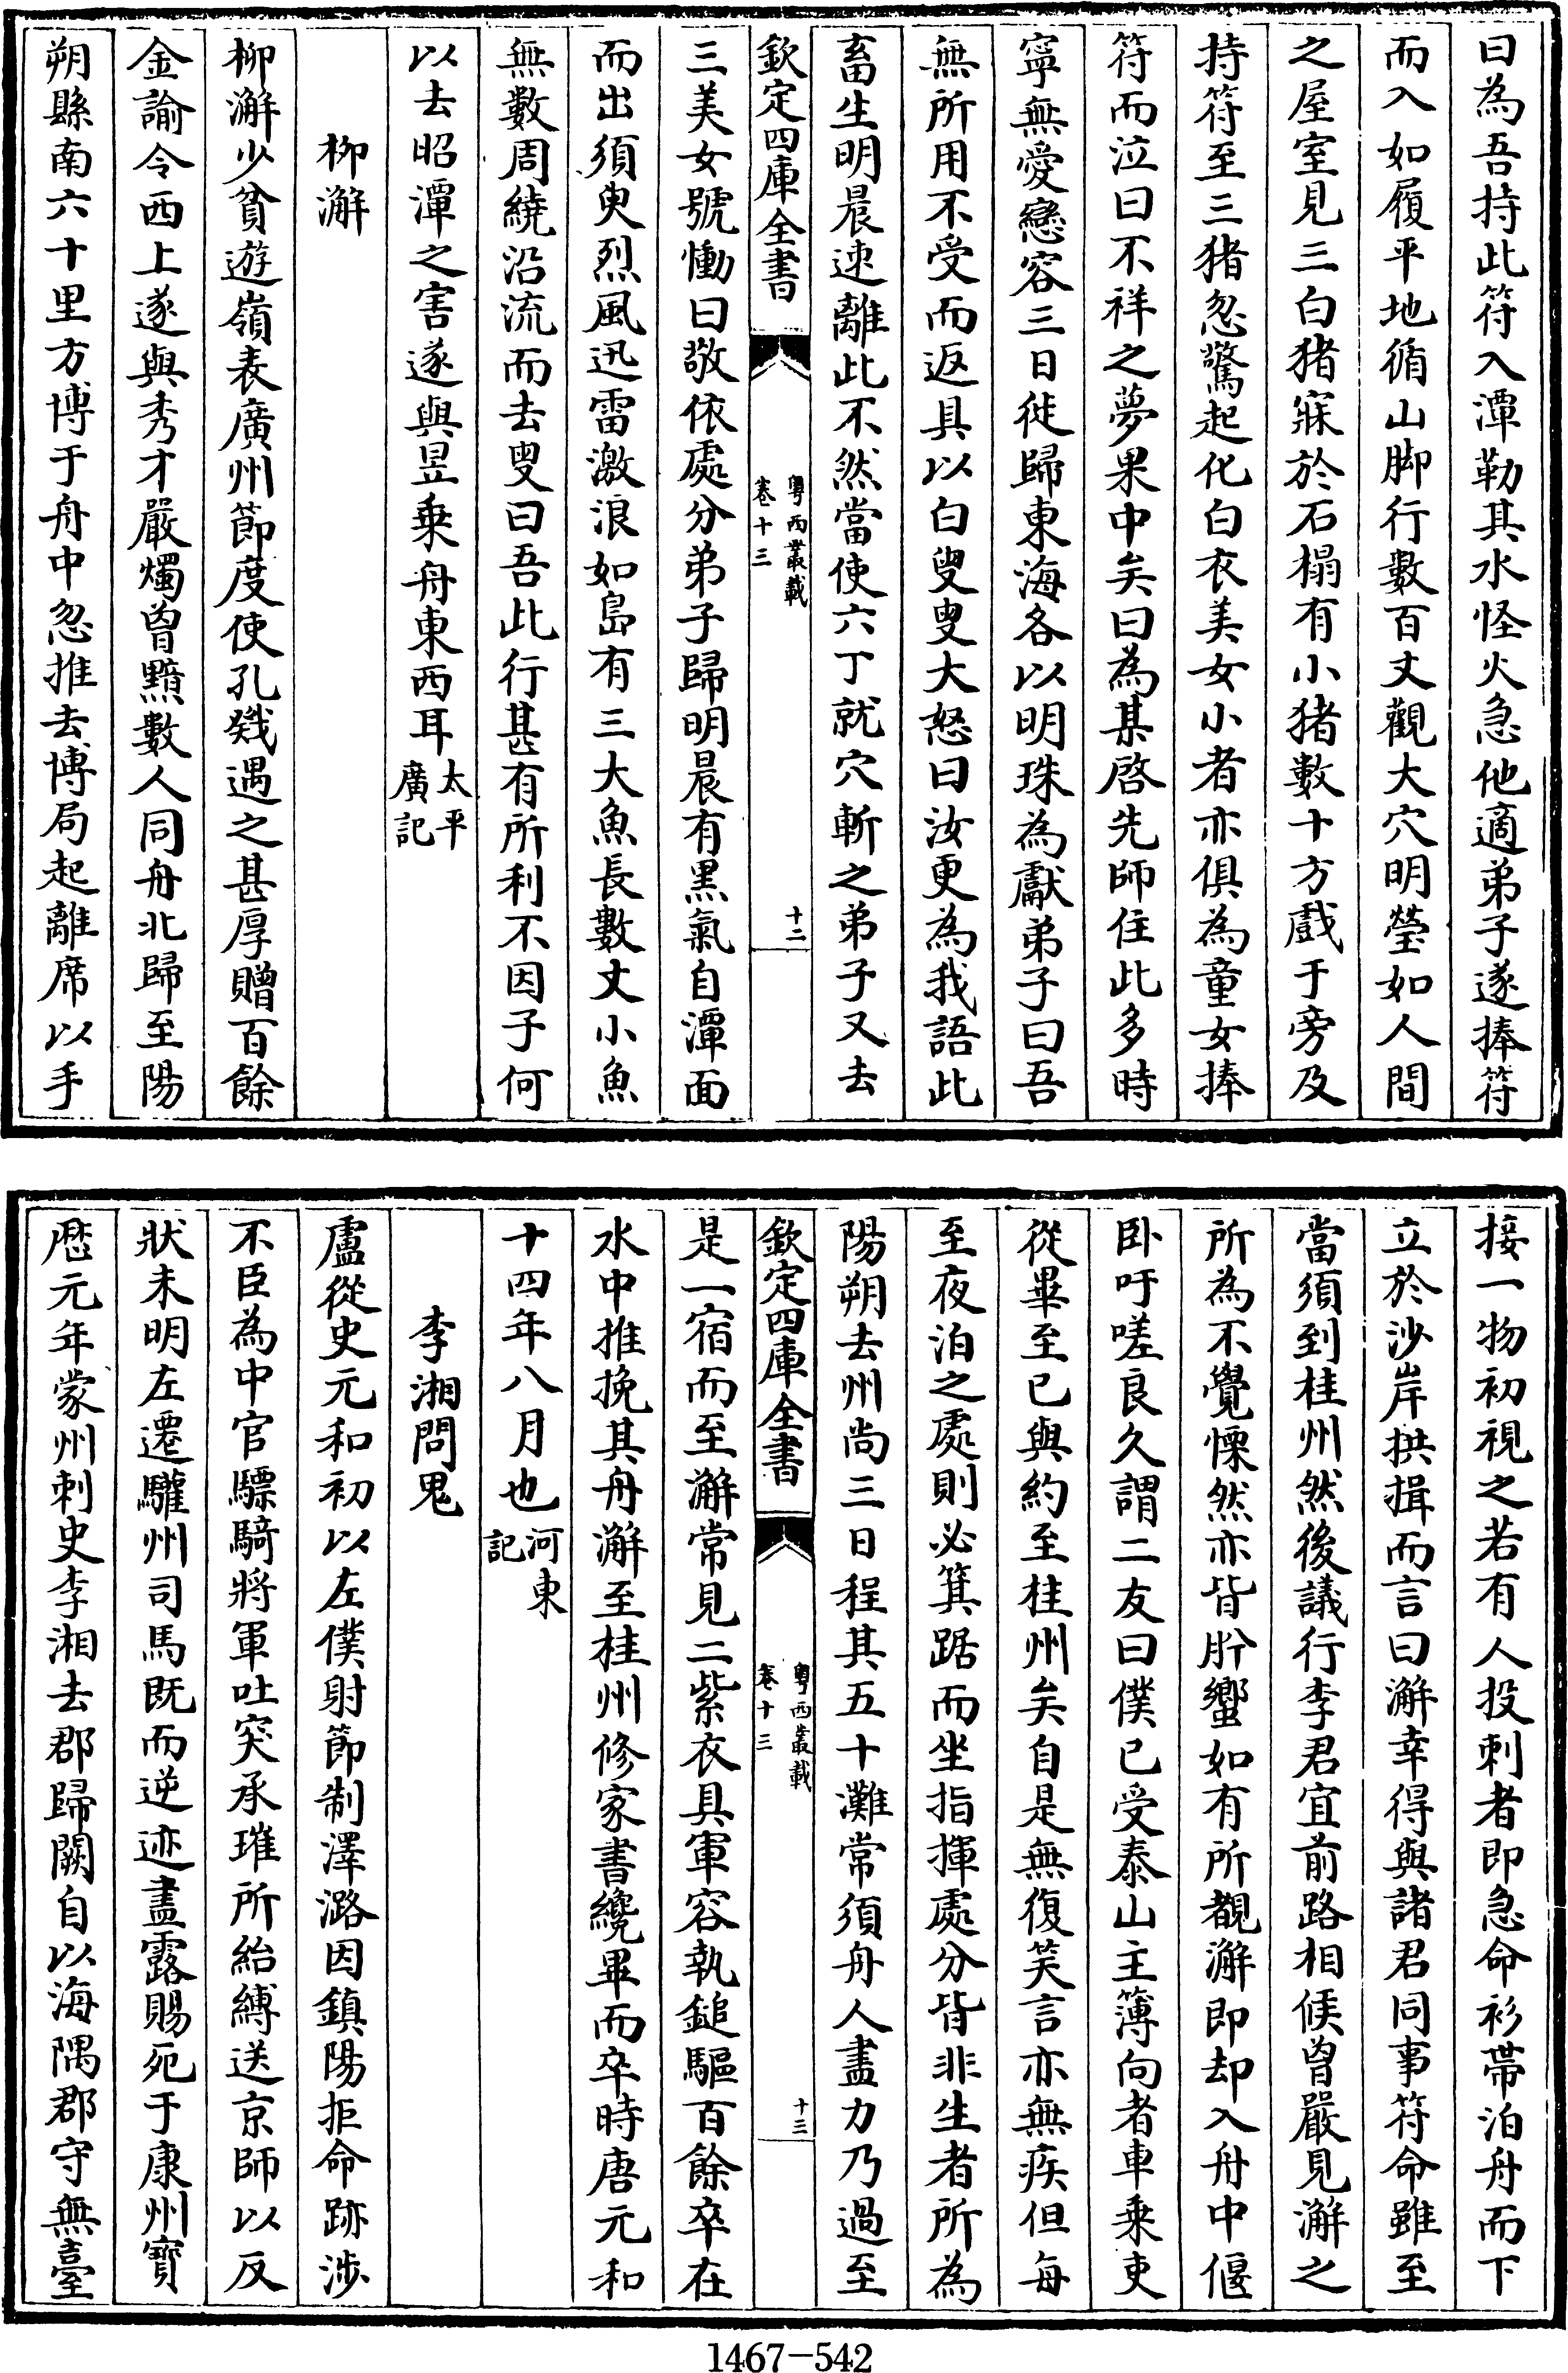 曰為吾持此符入潭勒其水怪火急他適弟子遂捧符
而入如履平地循山脚行數百丈觀大穴明瑩如人間
之屋室見三白猪寐於石榻有小猪數十方戲于旁及
持符至三猪忽驚起化白衣美女小者亦俱為童女捧
符而泣曰不祥之夢果中矣曰為某啓先師住此多時
寧無愛戀容三日徙歸東海各以明珠為獻弟子曰吾
無所用不受而返具以白叟叟大怒曰汝更為我語此
畜生明晨速離此不然當使六丁就穴斬之弟子又去
欽定四庫全書
粤西叢載
卷十三
十二
三美女號慟曰敬依處分弟子歸明晨有黑氣自潭面
而出須臾烈風迅雷激浪如島有三大魚長數丈小魚
無數周繞沿流而去叟曰吾此行甚有所利不因子何
以去昭潭之害遂與昱乗舟東西耳太平廣記
柳澥
柳澥少貧遊嶺表廣州節度使孔戣遇之甚厚贈百餘
金諭令西上遂與秀才嚴燭曾黯數人同舟北歸至陽
朔縣南六十里方博于舟中忽推去博局起離席以手
接一物初視之若有人投刺者即急命衫帶泊舟而下
立於沙岸拱揖而言曰澥幸得與諸君同事符命雖至
當須到桂州然後議行李君宜前路相候曾嚴見澥之
所為不覺悚然亦皆肸蠁如有所覩澥即却入舟中偃
卧吁嗟良久謂二友曰僕已受泰山主簿向者車乗吏
從畢至已與約至桂州矣自是無復笑言亦無疾但每
至夜泊之處則必箕踞而坐指揮處分皆非生者所為
陽朔去州尚三日程其五十灘常須舟人盡力乃過至
欽定四庫全書
粤西叢載
卷十三
十三
是一宿而至澥常見二紫衣具軍容執鎚驅百餘卒在
水中推挽其舟澥至桂州修家書纔畢而卒時唐元和
十四年八月也河東記
李湘問鬼
盧從史元和初以左僕射節制澤潞因鎮陽拒命跡涉
不臣為中官驃騎將軍吐突承璀所紿縛送京師以反
狀未明左遷驩州司馬既而逆迹盡露賜死于康州寳
厯元年蒙州刺史李湘去郡歸闕自以海隅郡守無臺
1467-542